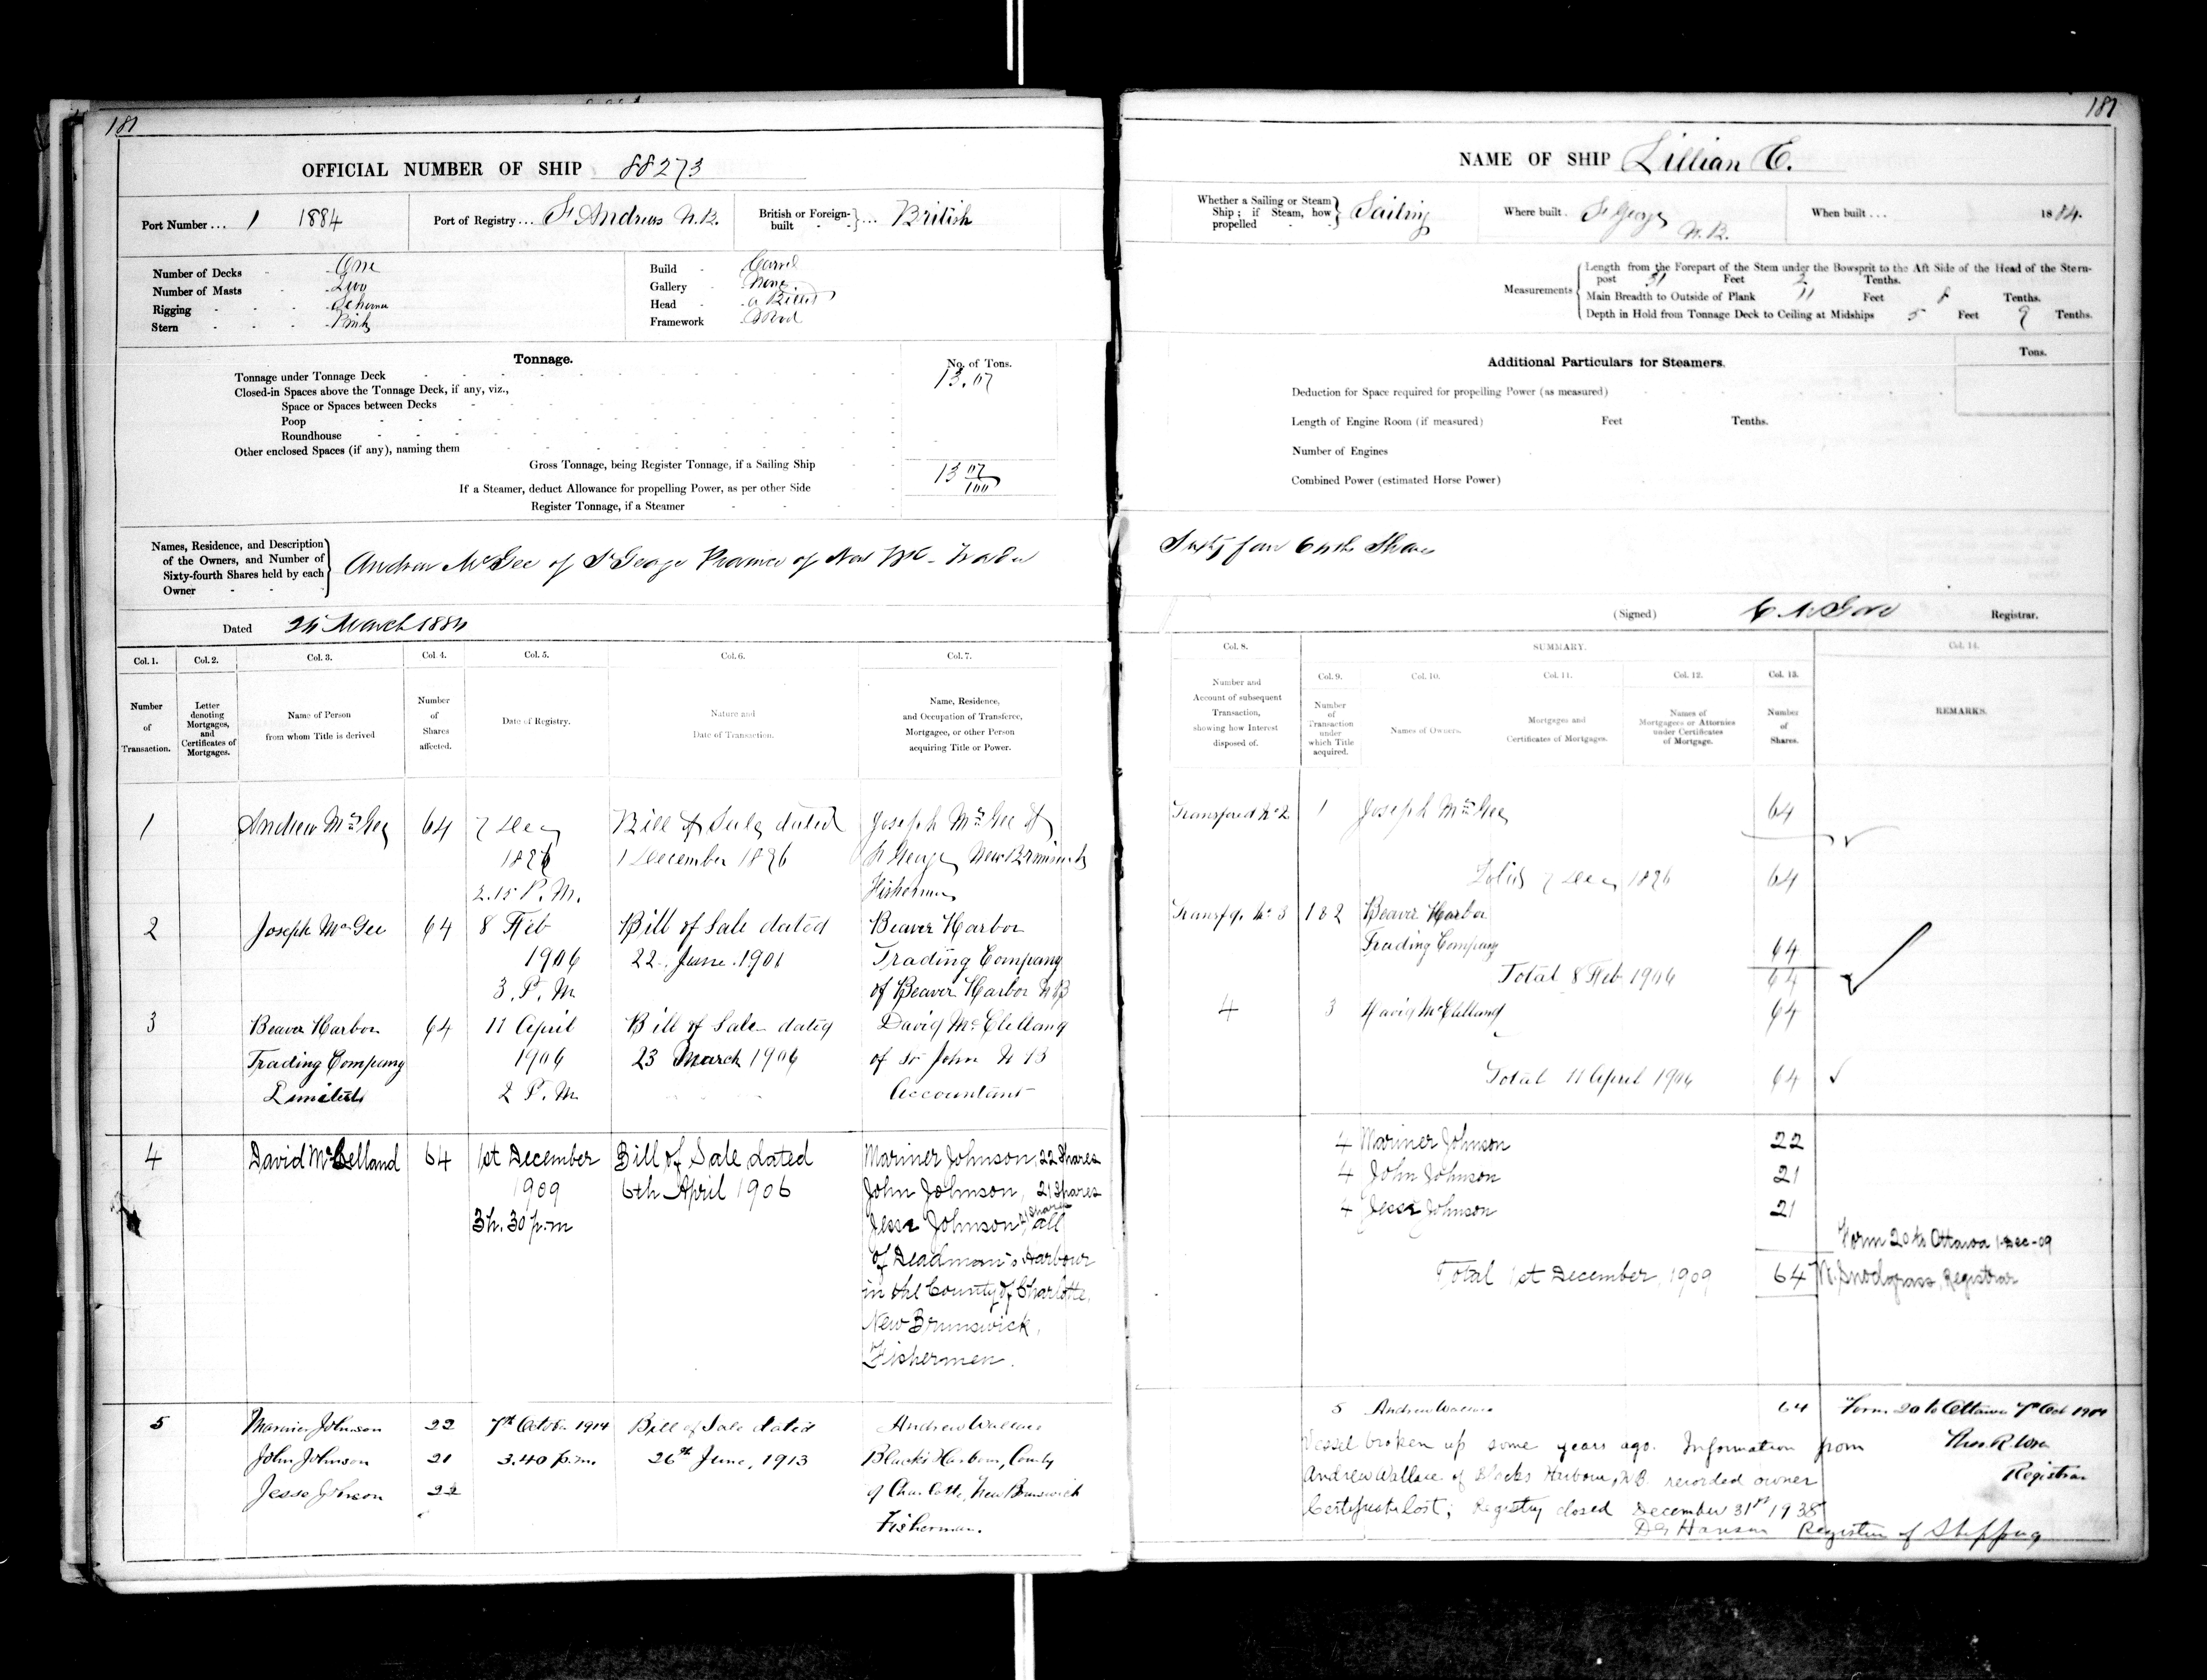 181
OFFICIAL NUMBER OF SHIP 88273
Port Number ... 1 1884
Port of Registry ... St Andrews N.B.
British or Foreign-built } ... British
Number of Decks - One
Number of Masts - Two
Rigging - Schooner
Stern - Pink
Build - Carvel
Gallery - None
Head - a Billet
Framework - Wood
Tonnage.
No. of Tons.
Tonnage under Tonnage Deck 13.07
Closed-in Spaces above the Tonnage Deck, if any, viz.,
Space or Spaces between Decks
Poop
Roundhouse
Other enclosed Spaces (if any), naming them
Gross Tonnage, being Register Tonnage, if a Sailing Ship 13 07/100
If a Steamer, deduct Allowance for propelling Power, as per other Side
Register Tonnage, if a Steamer
Names, Residence, and Description
of the Owners, and Number of
Sixty-fourth Shares held by each
Owner
Andrew McGee of St George Province of New Bk - Trader
Dated March 1884
Col. 1. Col. 2. Col. 3. Col. 4. Col. 5. Col. 6. Col. 7.
Number of Transaction.
Letter denoting Mortgages, and Certificates of Mortgages.
Name of Person from whom Title is derived
Number of Shares affected.
Date of Registry.
Nature and Date of Transaction.
Name, Residence, and Occupation of Transferee, Mortgagee, or other Person acquiring Title or Power.
1 Andrew McGee 64 7 Dec Bill of Sale dated Joseph McGee of
1896 1 December 1896 St George New Brunswick
2.15 P.M. Fisherman
2 Joseph McGee 64 8 Feb Bill of Sale dated Beaver Harbor
1906 22 June 1901 Trading Company
3 P.M of Beaver Harbor N B
3 Beaver Harbor 64 11 April Bill of Sale dated David McClelland
Trading Company 1906 23 March 1906 of St John N B
Limited 2 P.M Accountant
4 David McLelland 64 1st December Bill of Sale dated Mariner Johnson, 22 Shares
1909 6th April 1906 John Johnson, 21 Shares
3h. 30 p.m Jesse Johnson 21 Shares all
of Deadman's Harbour
in the County of Charlotte,
New Brunswick,
Fishermen.
5 Mariner Johnson 22 7th October 1914 Bill of Sale dated Andrew Wallace
John Johnson 21 3.40 p.m. 26th June, 1913 Blacks Harbour, County
Jesse Johnson of Charlotte, New Brunswick
Fisherman.
181
NAME OF SHIP Lillian E.
Whether a Sailing or Steam
Ship; if Steam, how
propelled
Sailing
Where built. St George N.B.
When built ... 1884.
Measurements
Length from the Forepart of the Stem under the Bowsprit to the Aft Side of the Head of the Stern-
post 31 Feet 2 Tenths.
Main Breadth to Outside of Plank 11 Feet 8 Tenths.
Depth in Hold from Tonnage Deck to Ceiling at Midships 5 Feet 9 Tenths.
Additional Particulars for Steamers.
Tons.
Deduction for Space required for propelling Power (as measured)
Length of Engine Room (if measured) Feet Tenths.
Number of Engines
Combined Power (estimated Horse Power)
Sixty four 64ths Shares
(Signed) Registrar.
Col. 8. SUMMARY. Col. 14.
Col. 9. Col. 10. Col. 11. Col. 12. Col. 13.
Number and Account of subsequent Transaction, showing how Interest disposed of.
Number of Transaction under which Title acquired.
Names of Owners.
Mortgages and Certificates of Mortgages.
Names of Mortgagees or Attornies under Certificates of Mortgage.
Number of Shares.
REMARKS.
Transfered No 2 1 Joseph McGee 64
Total 7 Dec 1896 64
No 3 1 & 2 Beaver Harbor
Trading Company 64
Total 8 Feb 1906 64
4 3 David McClelland 64
Total 11 April 1906 64
4 Mariner Johnson 22
4 John Johnson 21
4 Jesse Johnson 21
Form 20 to Ottawa 1-Dec-09
Total 1st December, 1909 64 N. Snodgrass, Registrar
5 Andrew Wallace 64 Form 20 to Ottawa 7th Oct 1914
Vessel broken up some years ago. Information from
Thos. R. Wren
Andrew Wallace of Blacks Harbour, N.B. recorded owner
Registrar
Certificate lost; Registry closed December 31st 1938
Hanson Registrar of Shipping